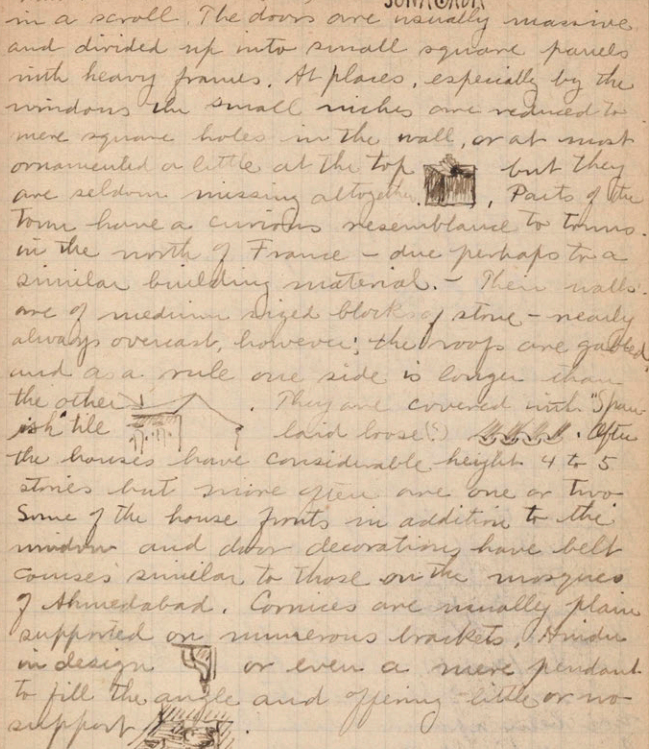 in a scroll. The doors are usually massive
and divided up into small square panels
with heavy frames. At places, especially by the
windows the small niches are reduced to
mere square holes in the wall, or at most
ornamented a little at the top but they
are seldom missing altogether. Parts of the
town have a curious resemblance to towns
in the north of France – due perhaps to a
similar building material. – Their walls
are of medium sized blocks of stone – nearly
always overcast, however; the roofs are gabled
and as a rule one side is longer than
the other. They are covered with "Span-
ish" tile laid loose (?). Often
the houses have considerable height 4 to 5
stories but more often are one or two
Some of the house fronts in addition to the
window and door decorations, have belt
courses similar to those on the mosques
of Ahmedabad. Cornices are usually plain
supported on numerous brackets, Hindu
in design or even a mere pendant
to fill the angle and offering little or no
support.